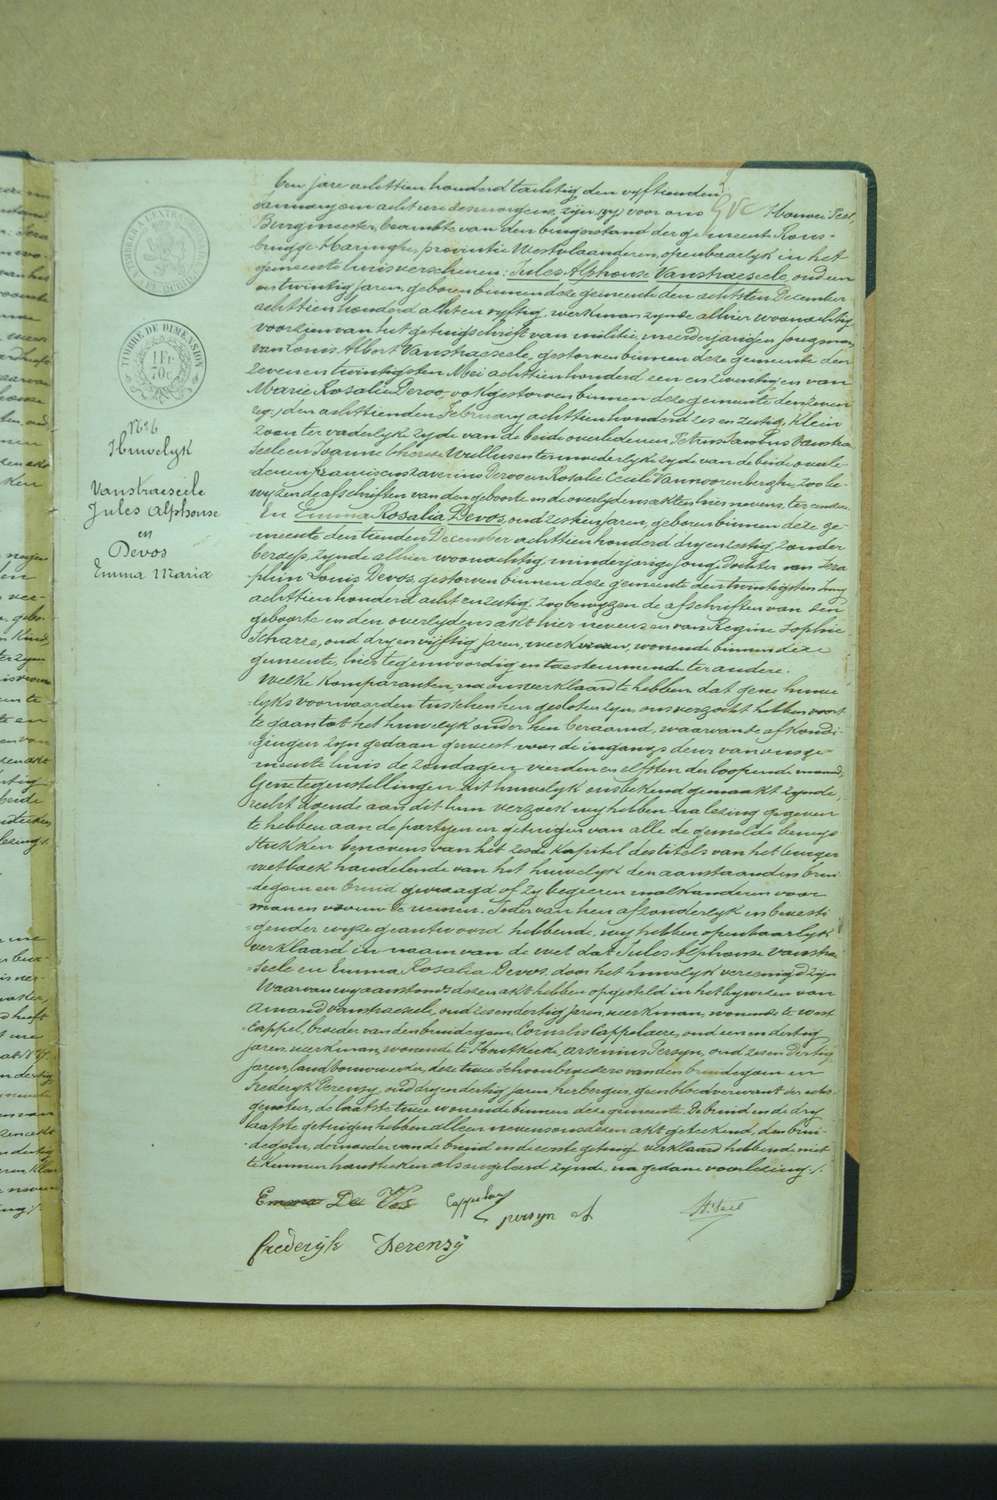 TIMBRE DE DIMENSION
1 Fr
70 c
N° 6
Huwelyk
Vanstraeseele
Jules Alphonse
en
Devos
Emma Maria
Ten jare achttien honderd tachtig den vyftienden
January om acht ure des morgens, zijn voor ons Honoré Peel,
Burgmeester, beambte van den burgerstand der gemeente Rous-
brugge-Haringhe, provintie Westvlaanderen, openbaarlyk in het
gemeente huis verschenen: Jules Alphonse Vanstraeseele, oud een
en twintig jaren, geboren binnen deze gemeente den achtsten December
achttien honderd acht en vyftig, werkman zynde alhier woonachtig
voorzien van het getuigschrift van militie, meerderjarigen jongman,
van Louis Albert Vanstraeseele, gestorven binnen deze gemeente den
zeven en twintigsten Mei achttien honderd een en zeventig en van
Marie Rosalie Deroo, ook gestorven binnen deze gemeente den
den achttienden February achttien honderd zes en zestig, Klein
zoon ter vaderlyke zyde van de beide overledenen Petrus Jacobus Vanstrae
seele en Joanne Wullus en ter moederlyke zyde van de beide overle-
denen Franciscus Xaverius Deroo en Rosalie Cecile Vannoorenberghe, zoo be-
wyzen de afschriften van den geboorte en de overlydens akten hier nevens, ter eendere
En Emma Rosalia Devos, oud zestien jaren, geboren binnen deze ge-
meente den tienden December achttien honderd dry en zestig, zonder
beroep, zynde alhier woonachtig, minderjarige jonge dochter van Sera-
phin Louis Devos, gestorven binnen deze gemeente den twintigsten Juny
achttien honderd acht en zestig, zoo bewyzen de afschriften van den
geboorte en den overlydens akt hier nevens en van Regine Sophie
Scharre, oud dry en vyftig jaren, werkvrouw, wonende binnen deze
gemeente, hier tegenwoordig en toestemmende ter andere.
Welke komparanten, na ons verklaard te hebben dat gene huwe-
lyks voorwaarden tusschen hen gesloten zyn, ons verzocht hebben voort
te gaan tot het huwelyk onder hen beraamd, waarvan de afkondi-
gingen zyn gedaan geweest voor de ingangs deur van ons ge-
meente huis de zondagen vierden en elfsten der loopende maand,
Gene tegenstellingen dit huwelyk ons bekend gemaakt zynde,
recht doende aan dit hun verzoek wy hebben na lezing gegeven
te hebben aan de partyen en getuigen van alle de gemelde bewys
stukken benevens van het zesde kapitel des titels van het burger
wetboek handelende van het huwelyk den aanstaanden brui-
degom en bruid gevraagd of zy begeeren malkanderen voor
man en vrouw te nemen. Ieder van hen afzonderlyk en bevesti-
gender wyze geantwoord hebbende, wy hebben openbaarlyk
verklaard in naam van de wet dat Jules Alphonse Vanstrae-
seele en Emma Rosalia Devos, door het huwelyk vereenigd zyn
Waarvan wy aanstonds dezen akt hebben opgesteld in het bywezen van
Amand Vanstraeseele, oud zes en dertig jaren, werkman, wonende te West-
Cappel, broeder van den bruidegom, Cornelis Cappelaere, oud een en dertig
jaren, werkman, wonende te Houtkerke, Arsenius Persyn, oud zes en dertig
jaren, landbouwwerker, deze twee schoonbroeders van den bruidegom en
Frederyk Derenzy, oud dry en dertig jaren herbergier, geen bloedverwant der echt
genoten, de laatste twee wonende binnen deze gemeente. De bruid en de dry
laatste getuigen hebben alleen nevens ons dezen akt geteekend, den brui-
degom, de moeder van de bruid en de eerste getuige verklaard hebbende niet
te kunnen handteeken als ongeleerd zynde, na gedane voorlezing ./.
Emma De Vos
persyn
Frederijk Derenzy